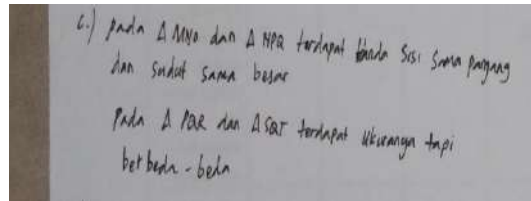 c.) pada Δ MNO dan Δ MPQ terdapat tanda sisi sama panjang
dan sudut sama besar
Pada Δ PQR dan Δ SQT terdapat ukurannya tapi
berbeda-beda